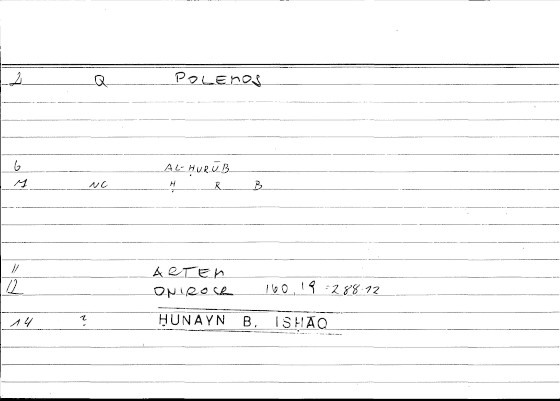 2 Q POLEMOS
6 AL-ḤURŪB
M NC Ḥ R B
11 ARTEM
12 ONIROCR 160,19 = 288.12
14 2 ḤUNAYN B. ISḤĀQ